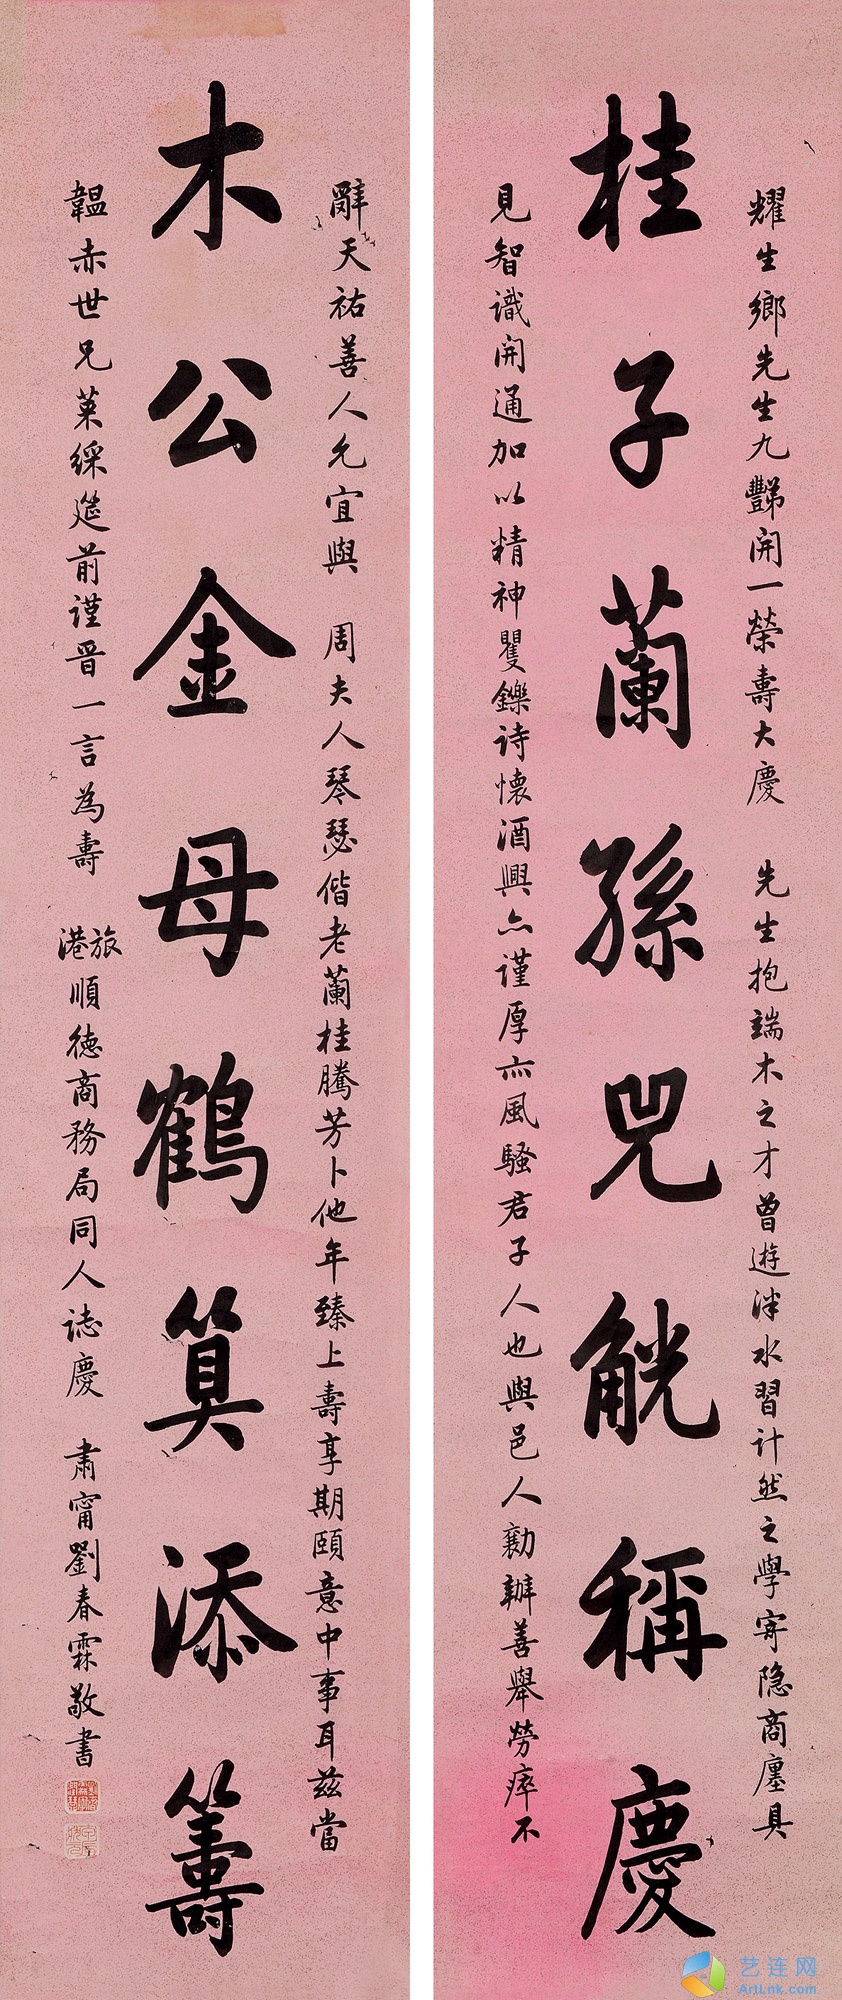 耀生鄉先生九豒開一榮壽大慶　先生抱端木之才曾遊泮水習計然之學寄隐商廛具
桂子蘭孫兕觥稱慶
見智識開通加以精神矍鑠詩懷酒興亦謹厚亦風騷君子人也與邑人勷辦善舉勞瘁不
辭天祐善人允宜與　周夫人琴瑟偕老蘭桂騰芳卜他年臻上壽享期頤意中事耳兹當
木公金母鶴算添籌
韞赤世兄萊綵筵前谨晉一言為壽　旅港順德商務局同人誌慶　肅甯劉春霖敬書
艺连网
ArtLnk.com